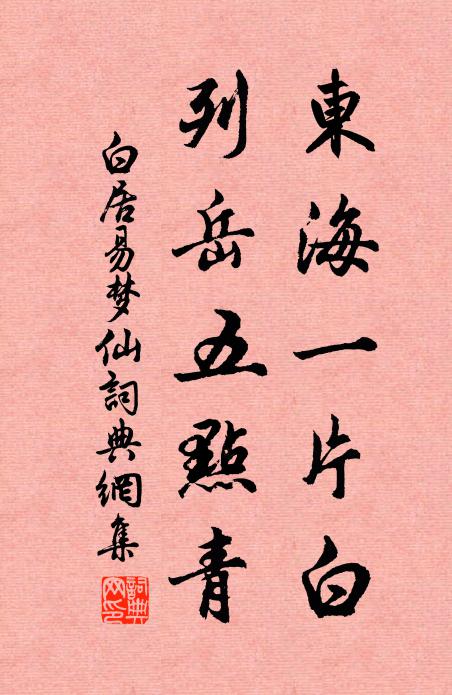 東海一片白
列岳五點青
白居易梦仙詞典網集
詞典
网印